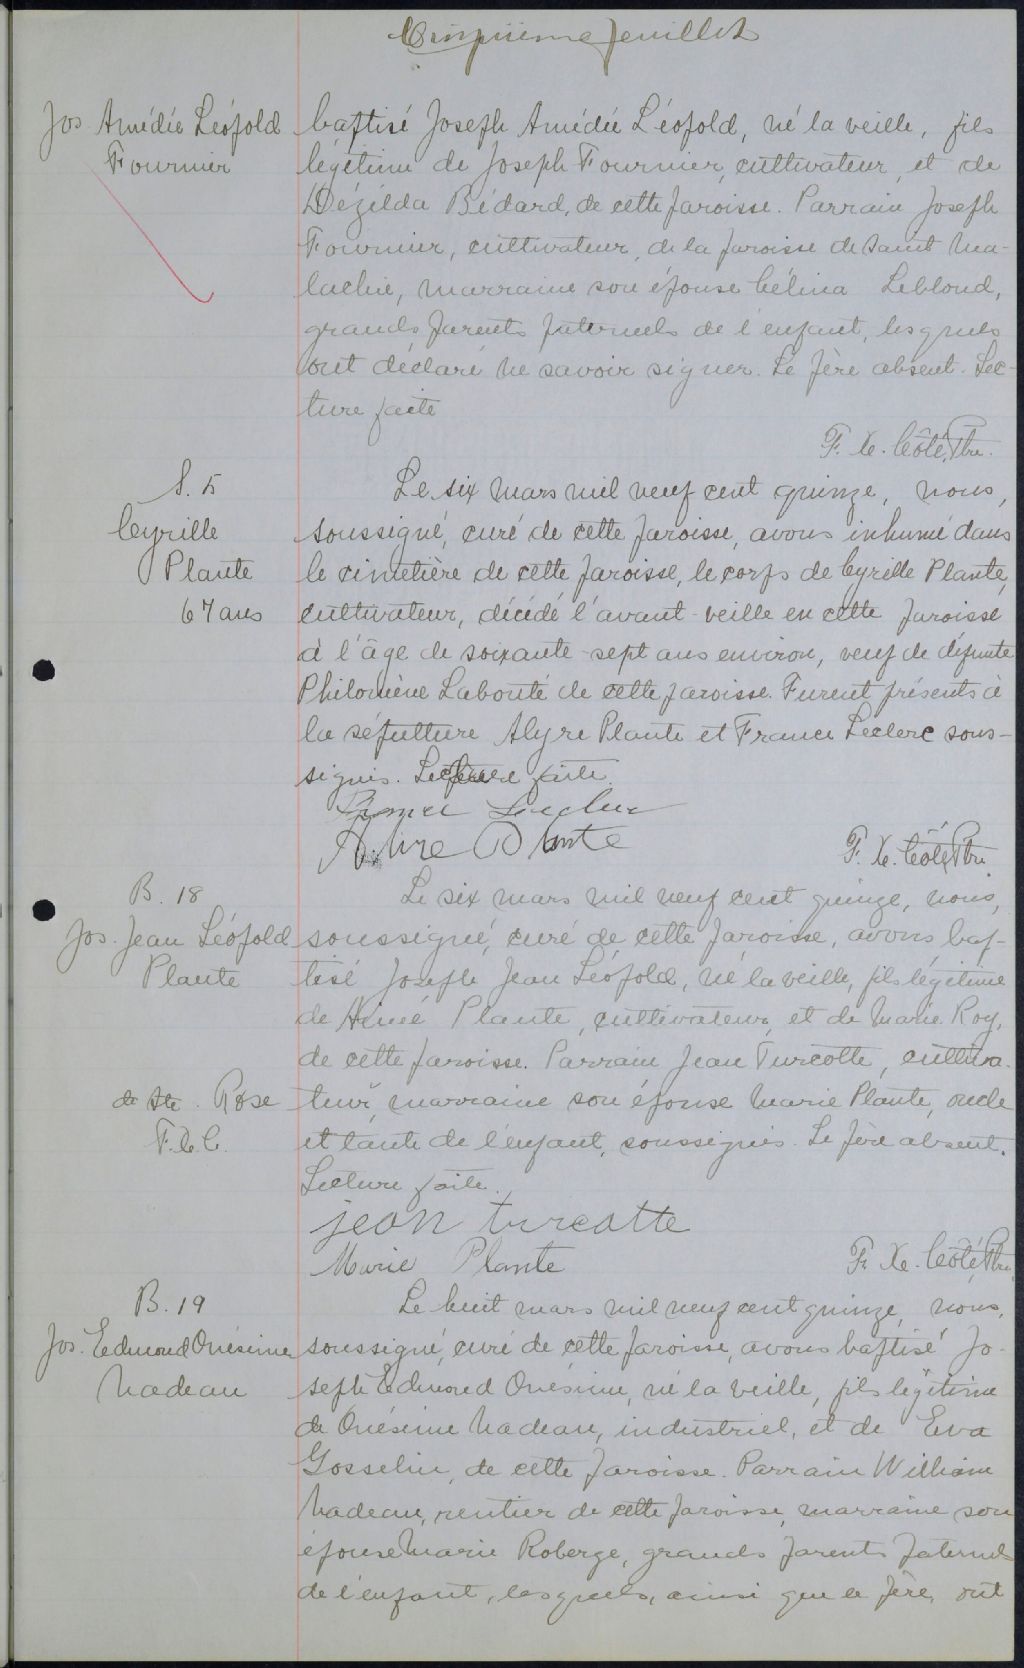 Cinquième feuillet
Jos Amédée Léopold
Fournier
baptisé Joseph Amédée Léopold, né la veille, fils
légitime de Joseph Fournier, cultivateur, et de
Dézilda Bédard, de cette paroisse. Parrain Joseph
Fournier, cultivateur, de la paroisse de Saint Ma-
lachie, marraine son épouse Célina Leblond,
grands parents paternels de l'enfant, lesquels
ont déclaré ne savoir signer. Le père absent. Lec-
ture faite
F. X. Côté, Ptre.
S. 5
Cyrille
Plante
67 ans
Le six mars mil neuf cent quinze, nous,
soussigné, curé de cette paroisse, avons inhumé dans
le cimetière de cette paroisse, le corps de Cyrille Plante,
cultivateur, décédé l'avant-veille en cette paroisse
à l'âge de soixante-sept ans environ, veuf de défunte
Philomène Labonté de cette paroisse. Furent présents à
la sépulture Alyre Plante et France Leclerc sous-
signés. Lecture faite.
Leclerc
Alire Plante
F. X. Côté, Ptre.
B. 18
Jos. Jean Léopold
Plante
de Ste. Rose
F. X. C.
Le six mars mil neuf cent quinze, nous,
soussigné, curé de cette paroisse, avons bap-
tisé Joseph Jean Léopold, né la veille, fils légitime
de Aimé Plante, cultivateur, et de Marie Roy,
de cette paroisse. Parrain Jean Turcotte, cultiva-
teur, marraine son épouse Marie Plante, oncle
et tante de l'enfant, soussignés. Le père absent.
Lecture faite.
jean turcotte
Marie Plante
F. X. Côté, Ptre.
B. 19
Jos. Edmond Onésime
Nadeau
Le huit mars mil neuf cent quinze, nous,
soussigné, curé de cette paroisse, avons baptisé Jo-
seph Edmond Onésime, né la veille, fils légitime
de Onésime Nadeau, industriel, et de Eva
Gosselin, de cette paroisse. Parrain William
Nadeau, rentier de cette paroisse, marraine son
épouse Marie Roberge, grands parents paternels
de l'enfant, lesquels, ainsi que le père, ont